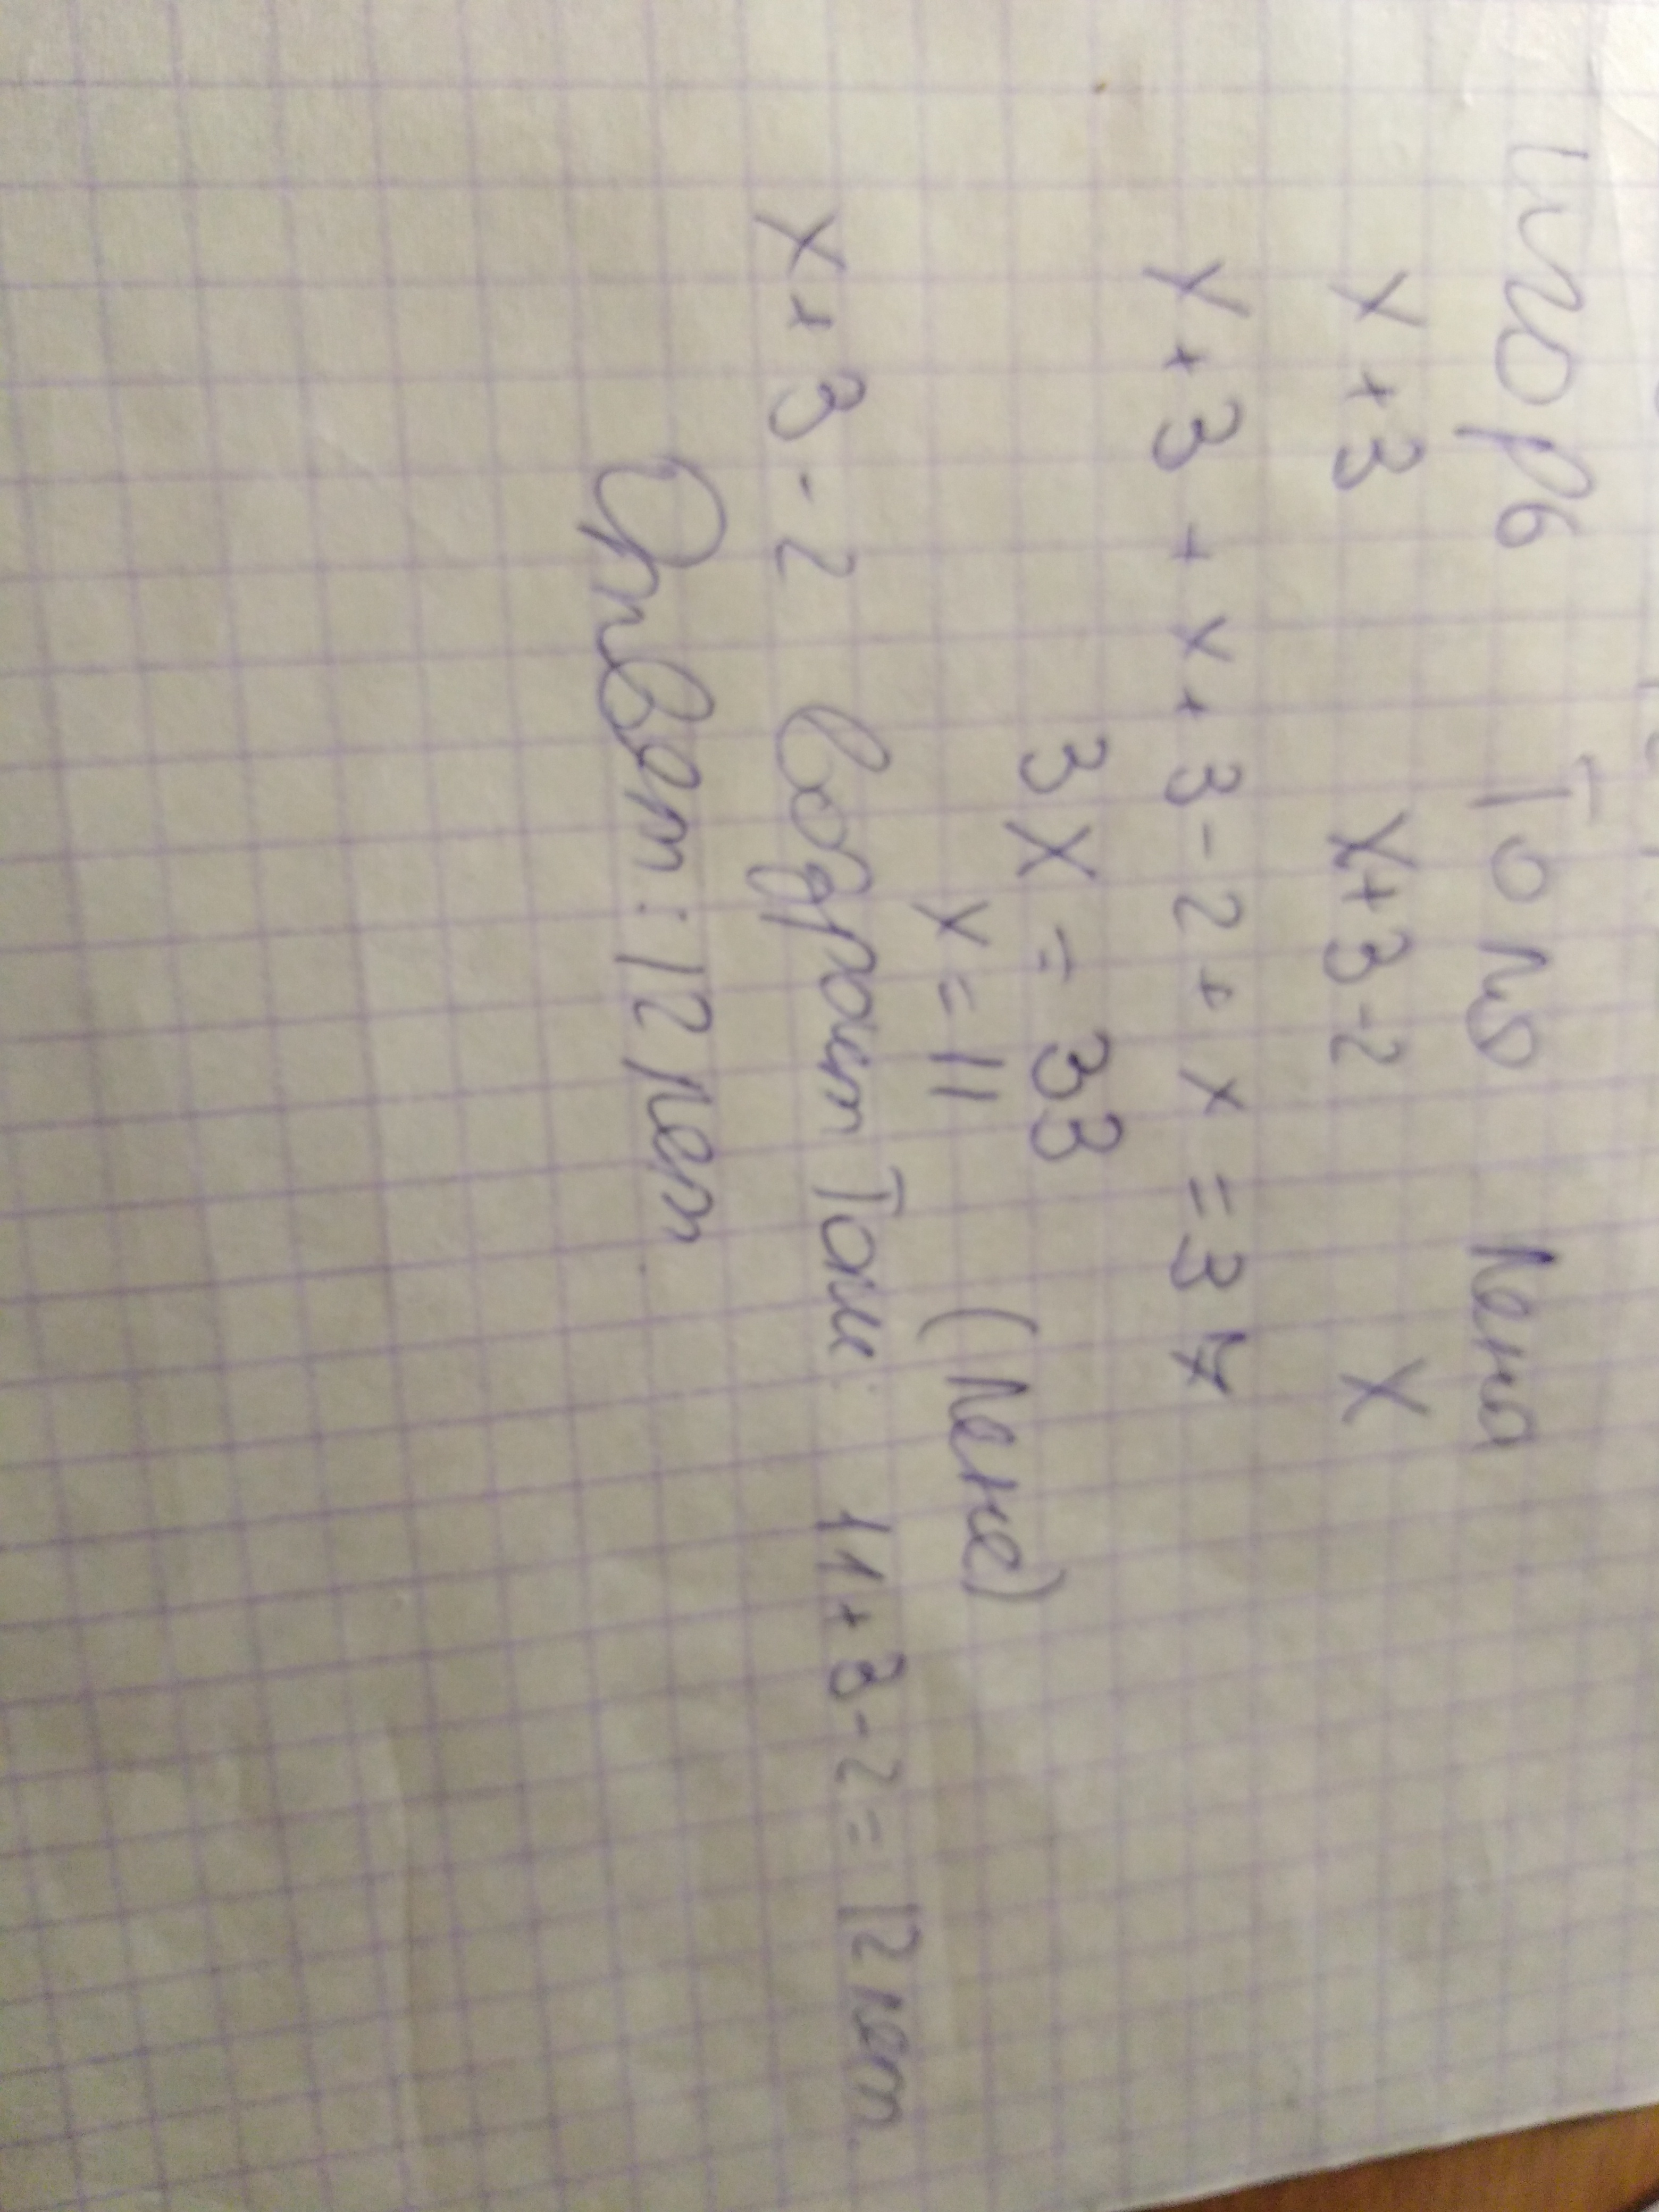 Игорь Толя Лена
x+3 x+3-2 x
x+3+x+3-2+x=37
3x=33
x=11 (Лене)
x+3-2 возраст Толи: 11+3-2=12 лет.
Ответ: 12 лет